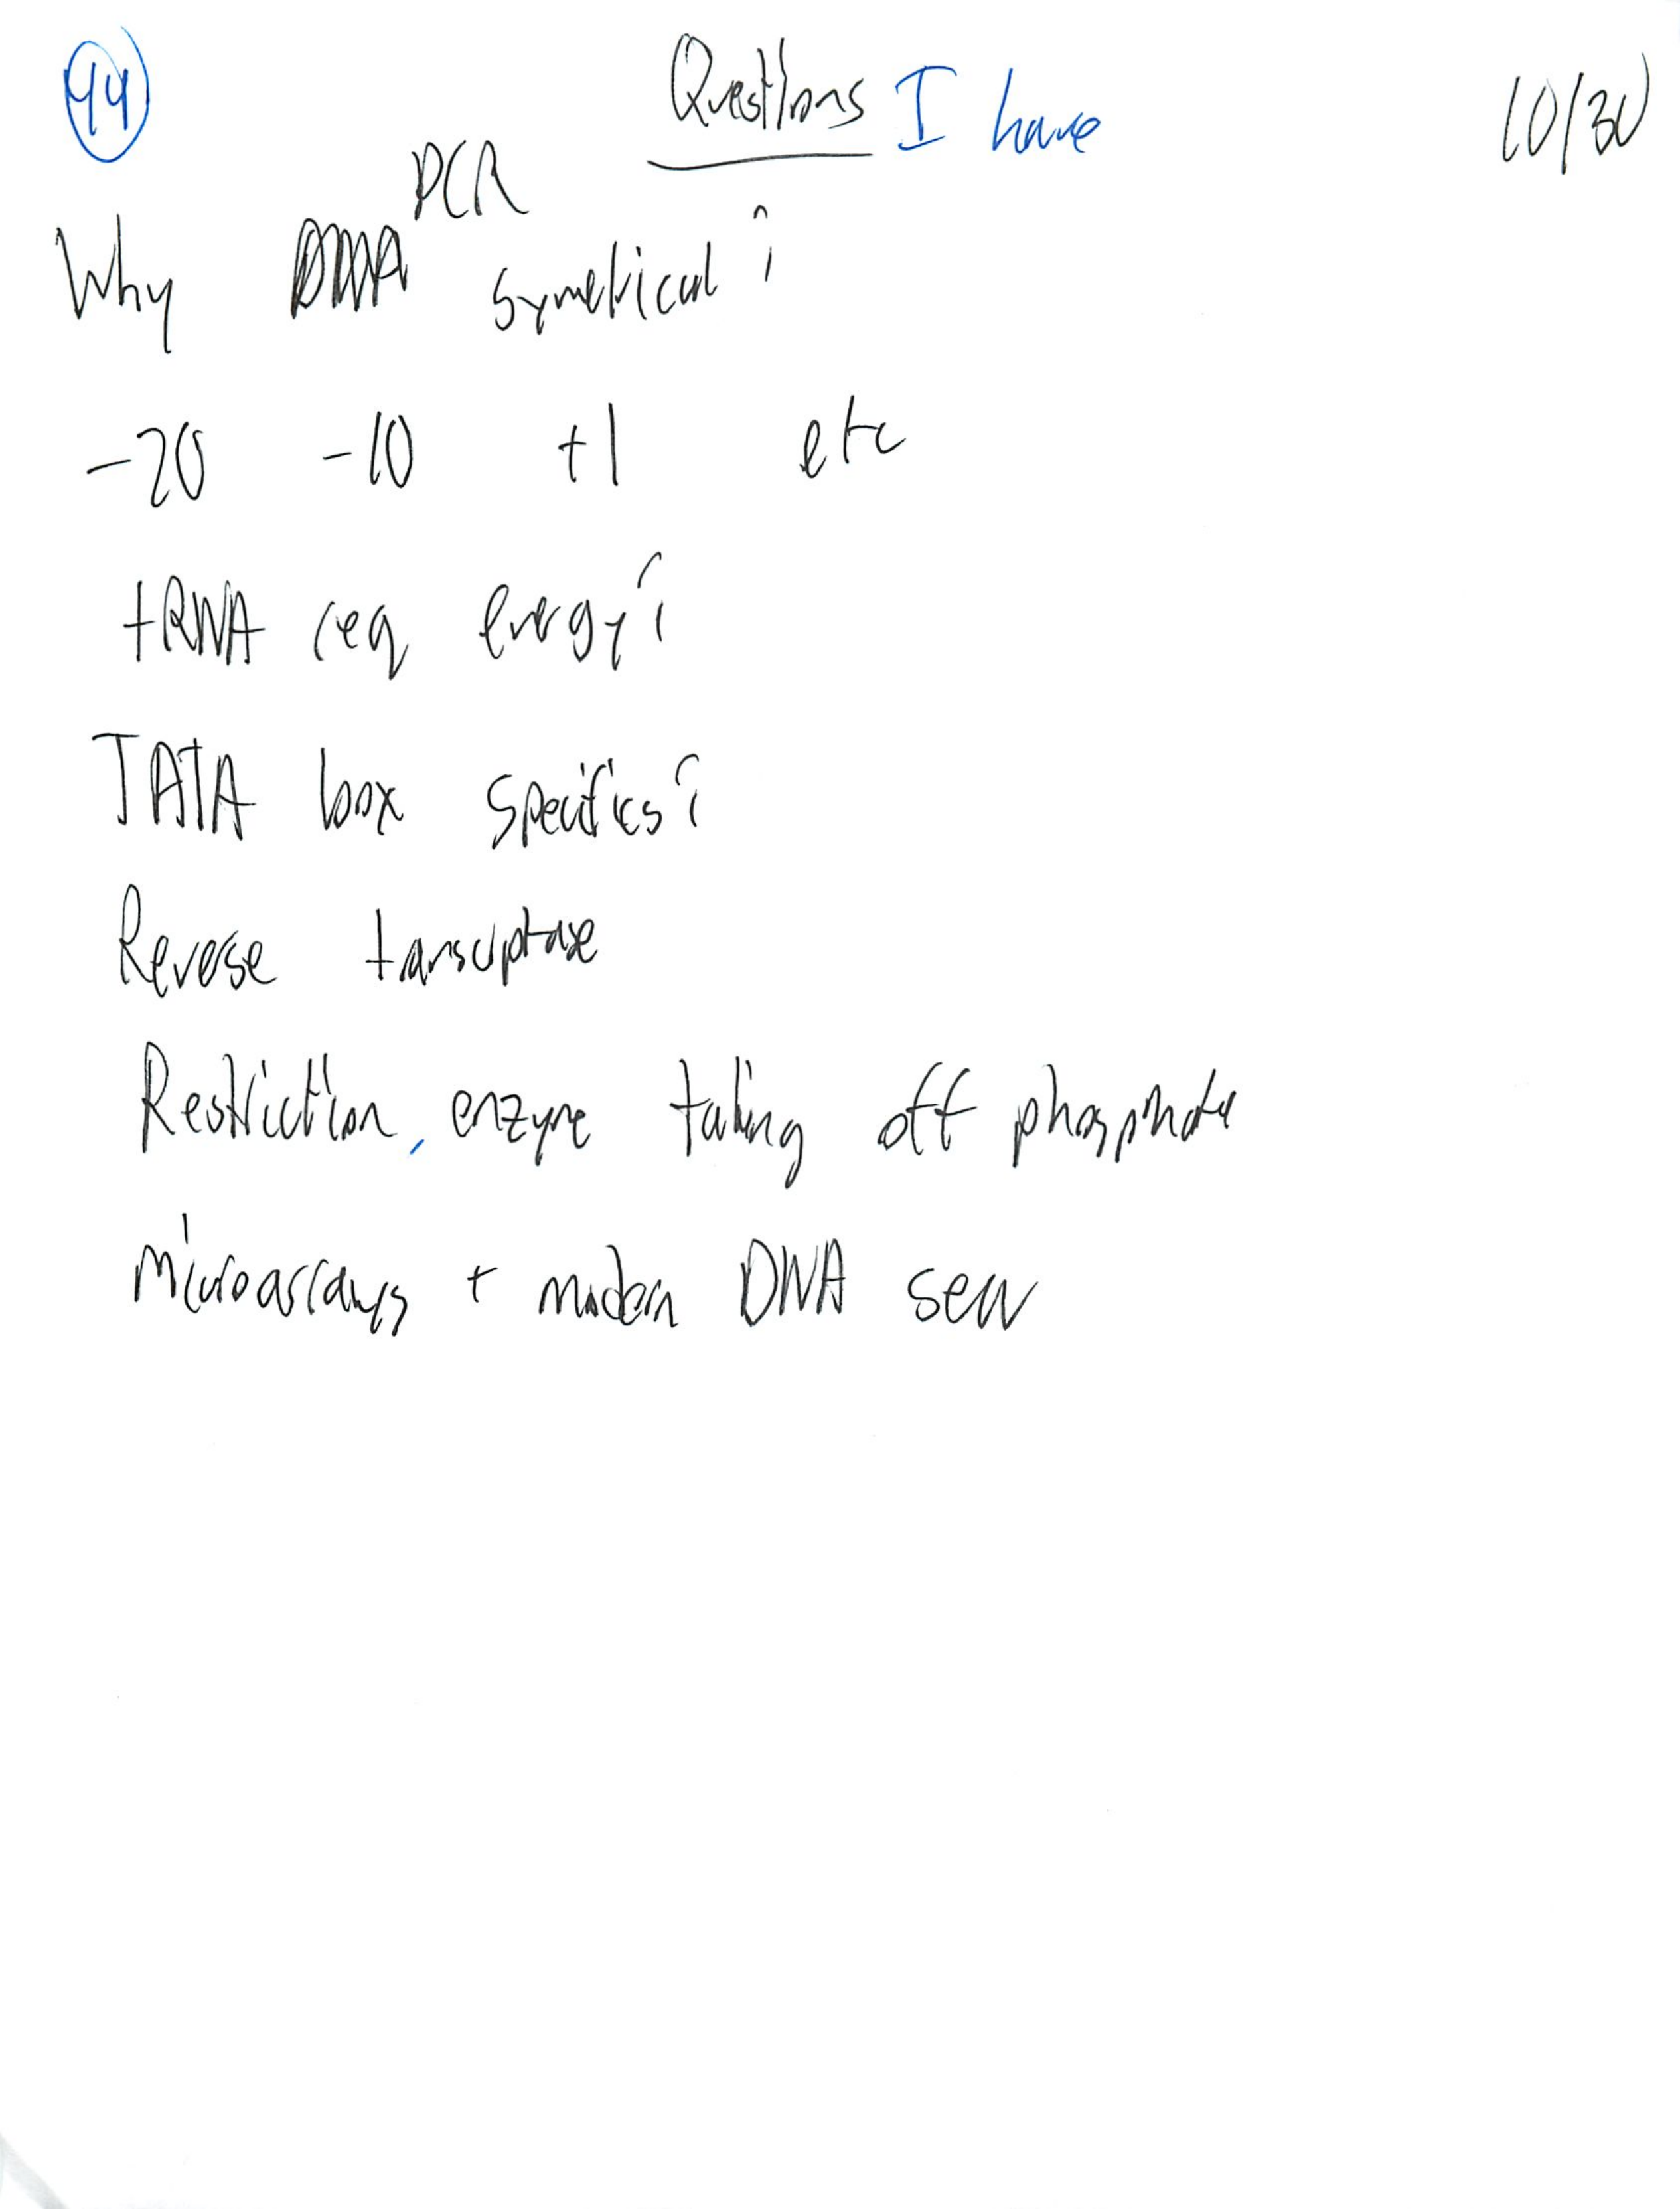 44 Questions I have 10/30
Why PCR symetrical?
-20 -10 +1 etc
tRNA req energy?
TATA box specifics?
Reverse transcriptase
Restriction enzyme taking off phosphate
Microarrays + modern DNA seq